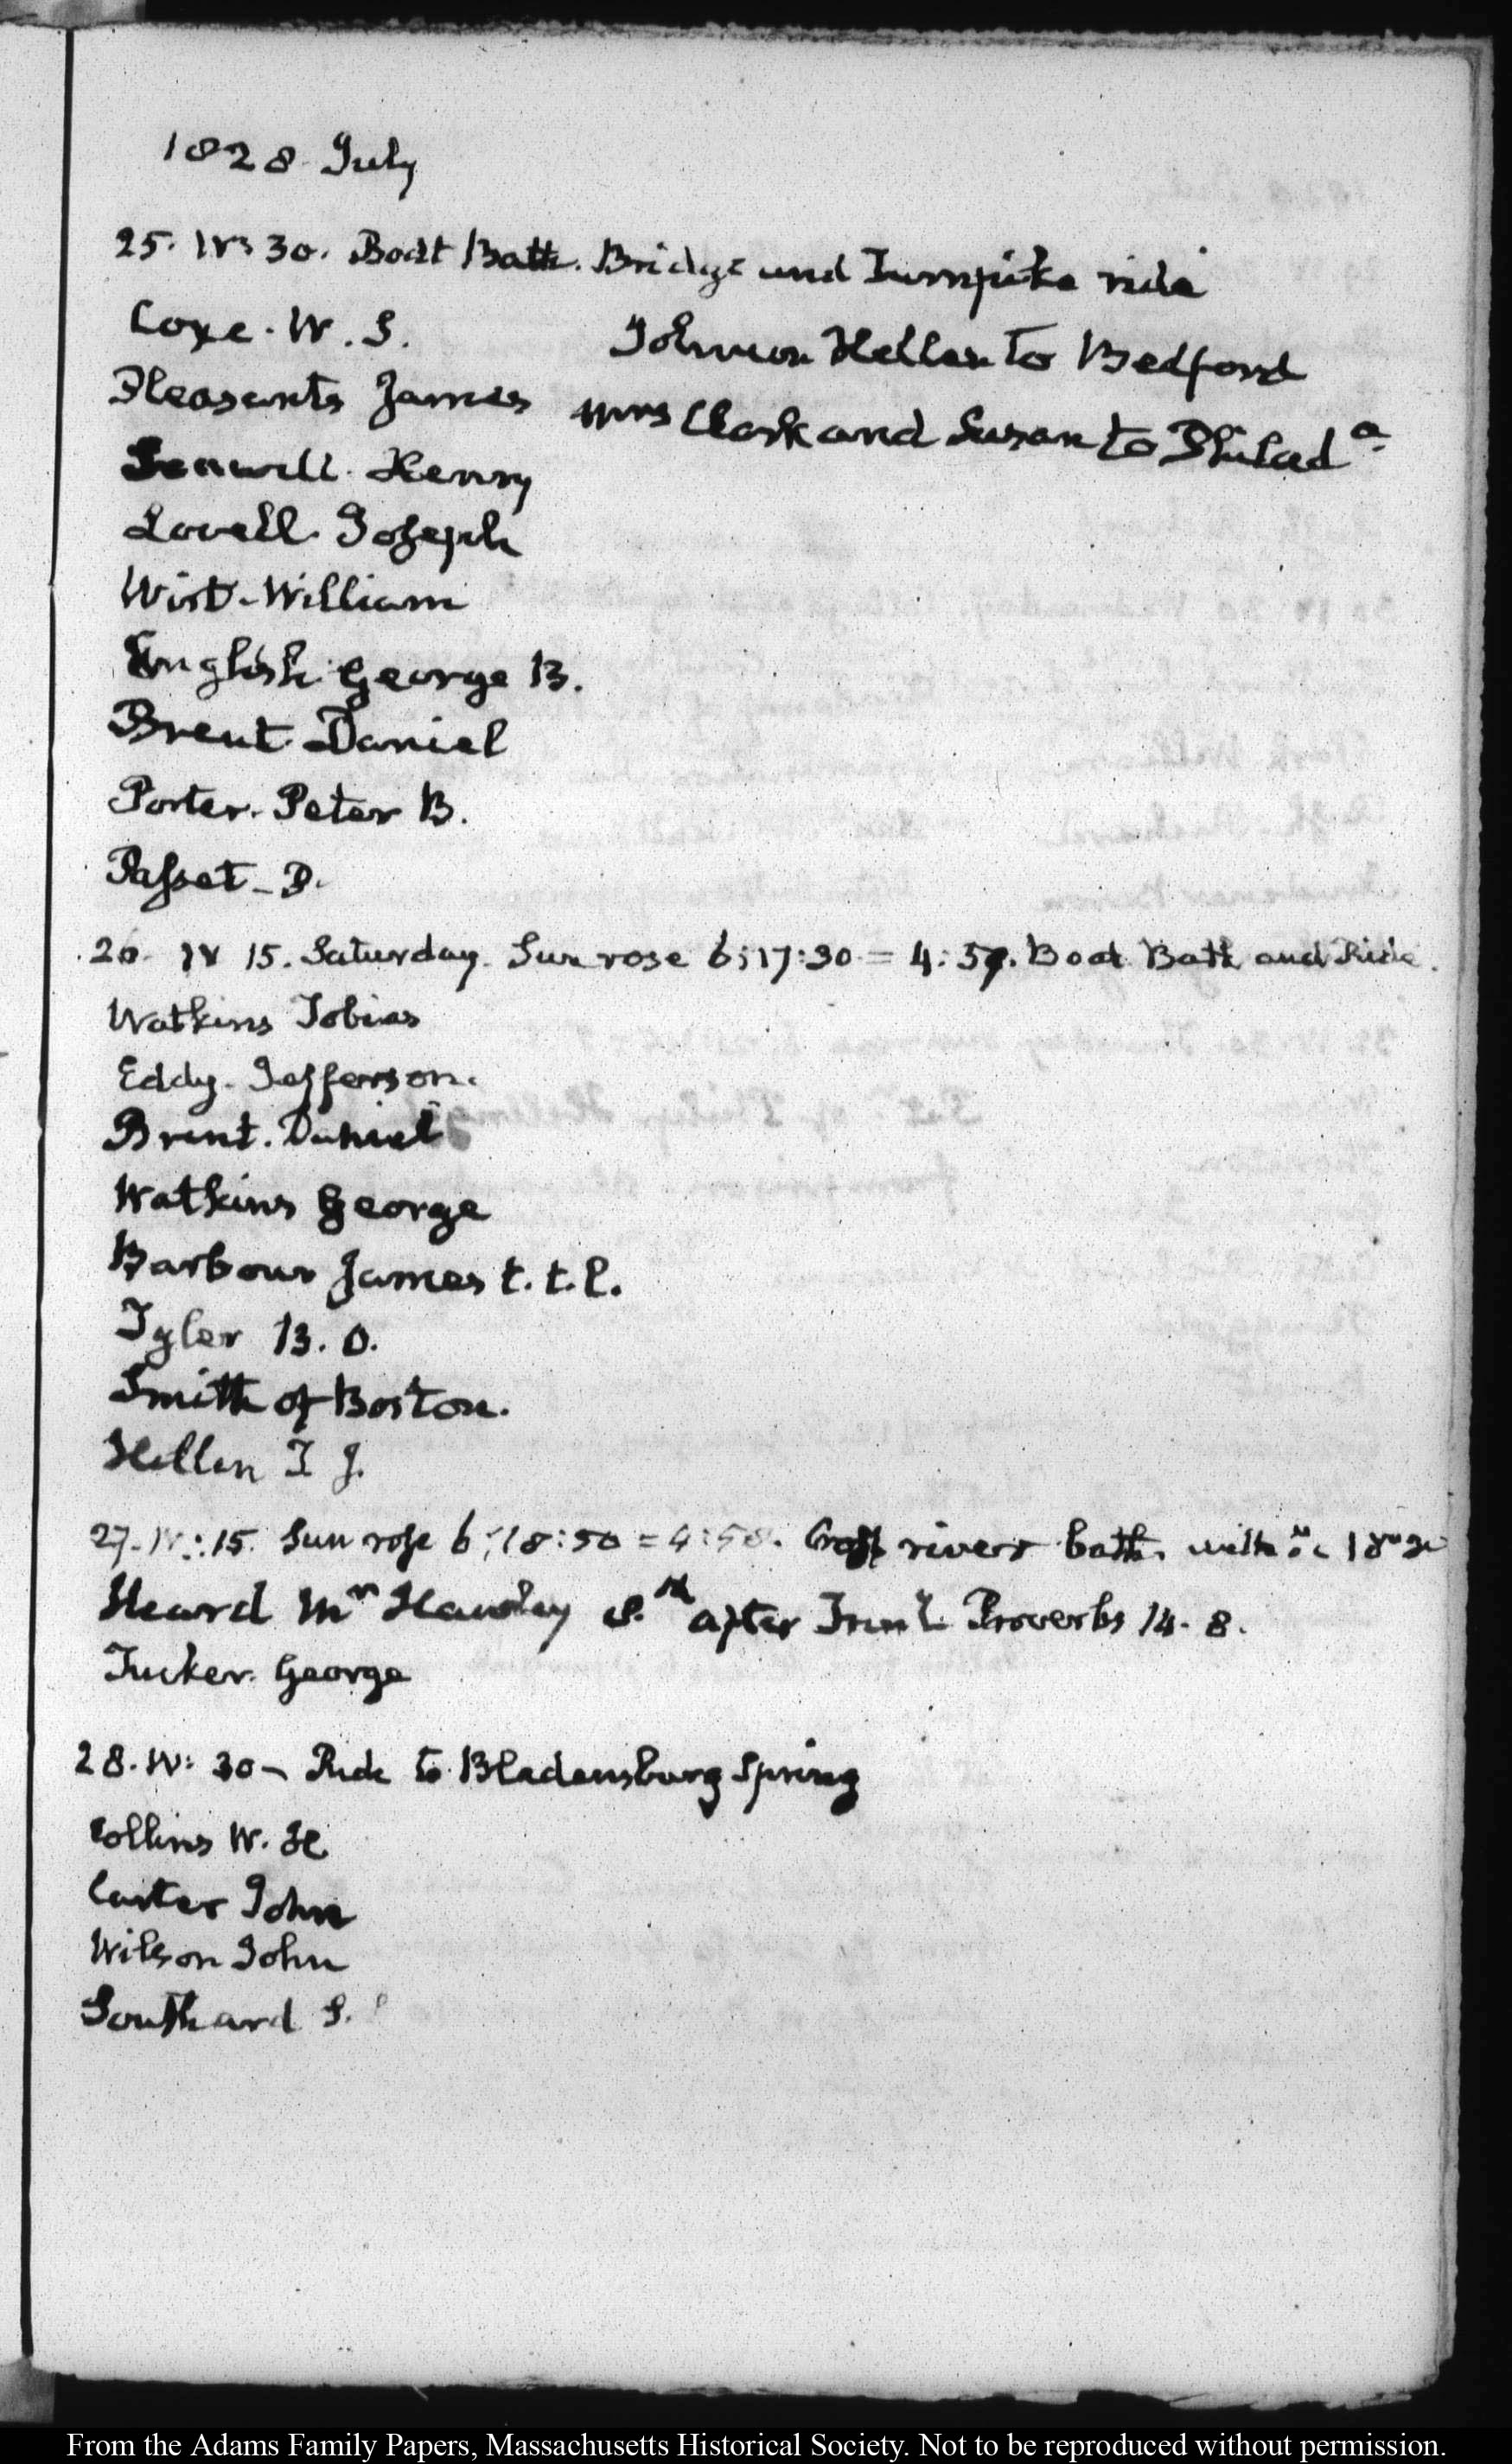 1828 July
25. IV: 30. Boat Bath. Bridge and Turnpike ride
Coxe. W. S. Johnson Hellen to Bedford
Pleasants James Mrs Clark and Susan to Philad.a
Seawell. Henry
Lovell. Joseph
Wirt. William
English George B.
Brent. Daniel
Porter. Peter B.
Passet. P.
26. IV 15. Saturday. Sun rose 6:17:30 = 4:57. Boat Bath and Ride.
Watkins Tobias
Eddy. Jefferson.
Brent. Daniel
Watkins George
Barbour James t.t.l.
Tyler B. O.
Smith of Boston.
Hellen T J.
27. IV: 15. Sun rose 6:18:50 = 4:58. Cross river bath. with
Heard Mr Hawley after Proverbs 14. 8.
Tucker. George
28. IV: 30 - Ride to Bladensburg Spring
Collins W. H
Carter John
Wilson John
Southard S.
From the Adams Family Papers, Massachusetts Historical Society. Not to be reproduced without permission.